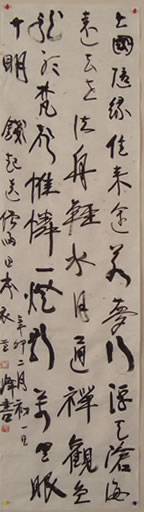 上國隨緣住來途若夢行浮天滄海
遠去世法舟輕水月通禪觀魚
龍聽梵聲惟憐一燈影萬里眼
中明 錢起送僧歸日本
辛卯二月初一日
峰書